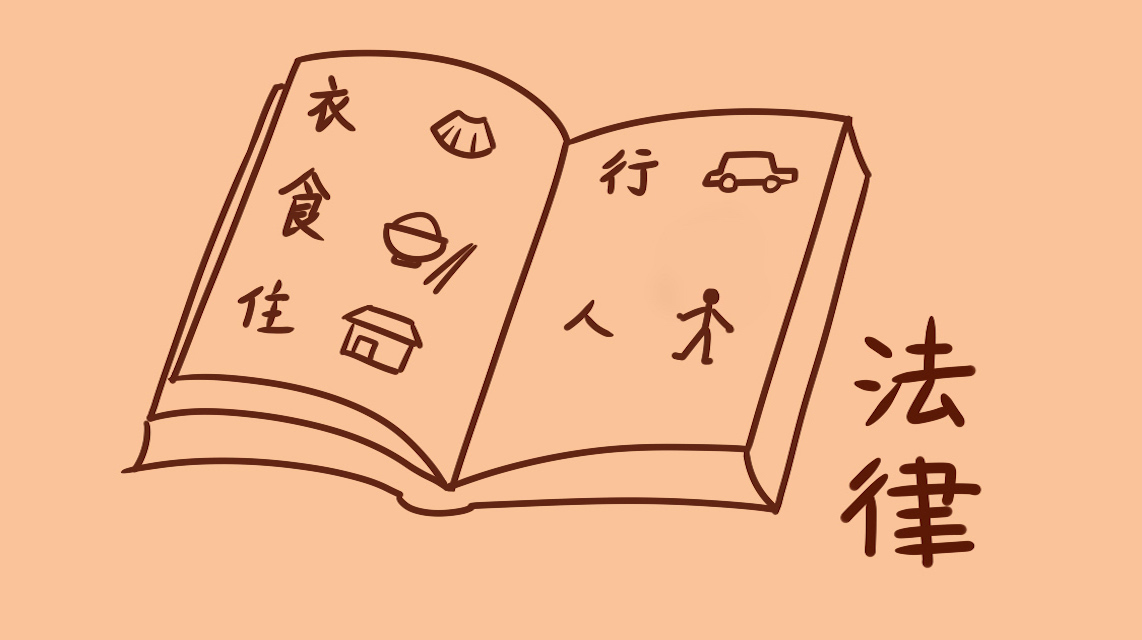 衣
食
住
行
人
法律